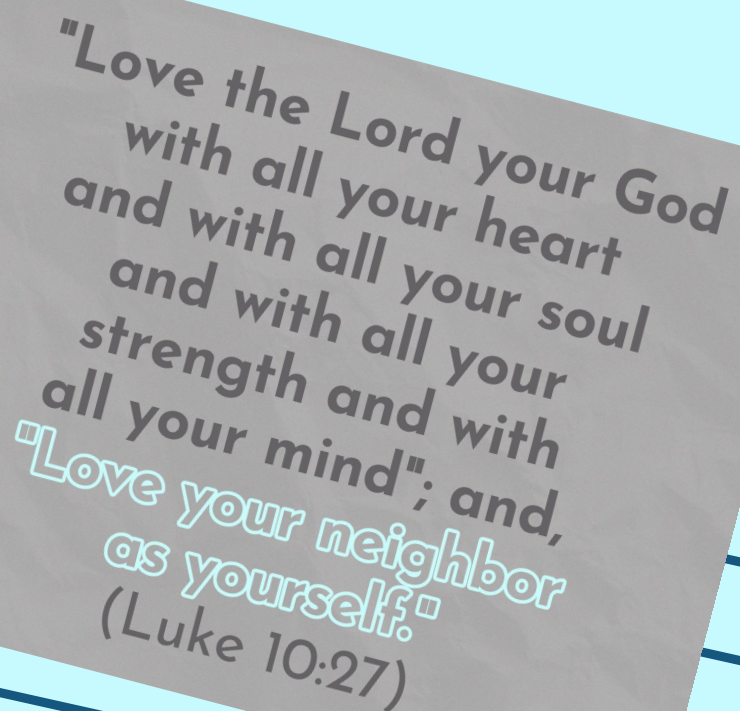 "Love the Lord your God
with all your heart
and with all your soul
and with all your
strength and with
all your mind"; and,
"Love your neighbor
as yourself."
(Luke 10:27)